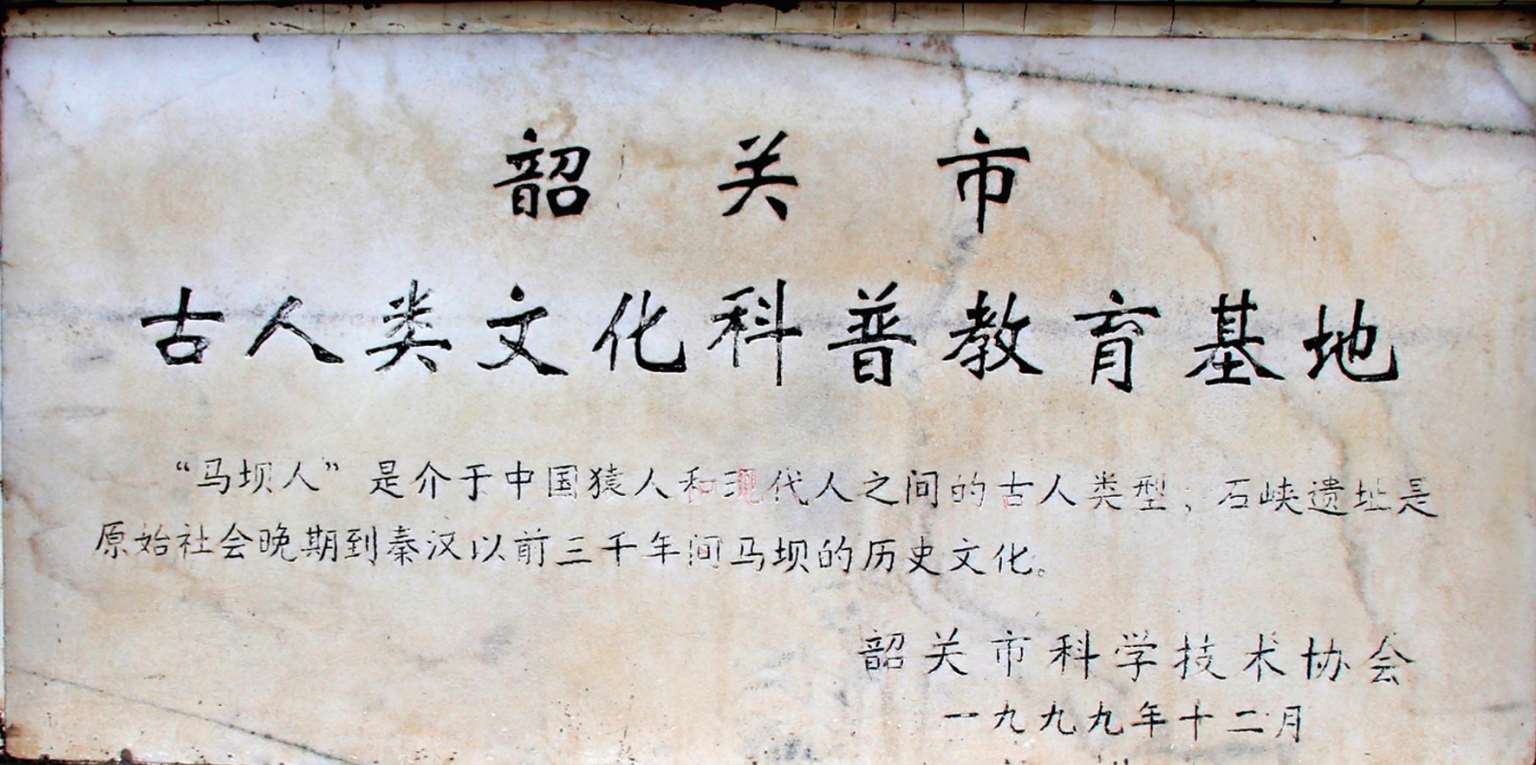 韶关市
古人类文化科普教育基地
“马坝人”是介于中国猿人和现代人之间的古人类型；石峡遗址是
原始社会晚期到秦汉以前三千年间马坝的历史文化。
韶关市科学技术协会
一九九九年十二月